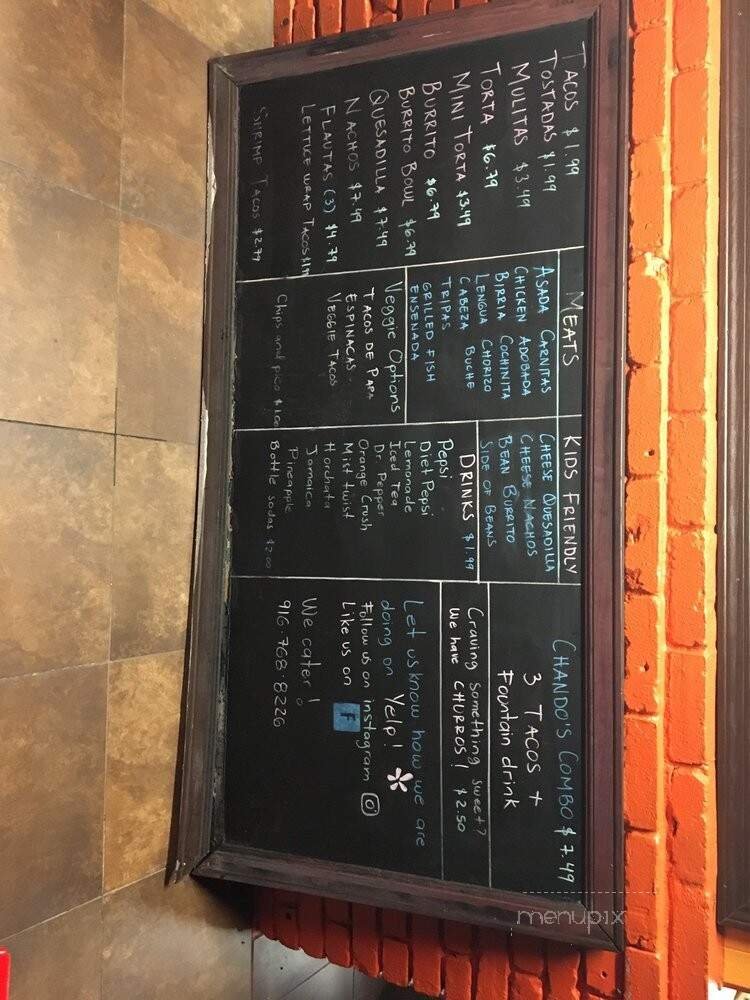 TACOS $1.99
TOSTADAS $1.99
MULITAS $3.49
TORTA $6.79
MINI TORTA $3.49
BURRITO $6.79
BURRITO BOWL $6.79
QUESADILLA $7.49
NACHOS $7.49
FLAUTAS (3) $4.79
LETTUCE WRAP TACOS
SHRIMP TACOS $2.79
MEATS
ASADA CARNITAS
CHICKEN ADOBADA
BIRRIA COCHINITA
LENGUA CHORIZO
CABEZA BUCHE
TRIPAS
GRILLED FISH
ENSENADA
Veggie Options
TACOS DE PAPA
ESPINACAS
VEGGIE TACOS
Chips and pico
KIDS FRIENDLY
CHEESE QUESADILLA
CHEESE NACHOS
BEAN BURRITO
SIDE OF BEANS
DRINKS $1.99
Pepsi
Diet Pepsi
Lemonade
Iced Tea
Dr. Pepper
Orange Crush
Mist twist
Horchata
Jamaica
Pineapple
Bottle sodas $2.00
CHANDO'S COMBO $7.49
3 TACOS +
Fountain drink
Craving something sweet?
We have CHURROS! $2.50
Let us know how we are
doing on Yelp!
Follow us on instagram
Like us on F
We cater!
916.768.8226
menupix